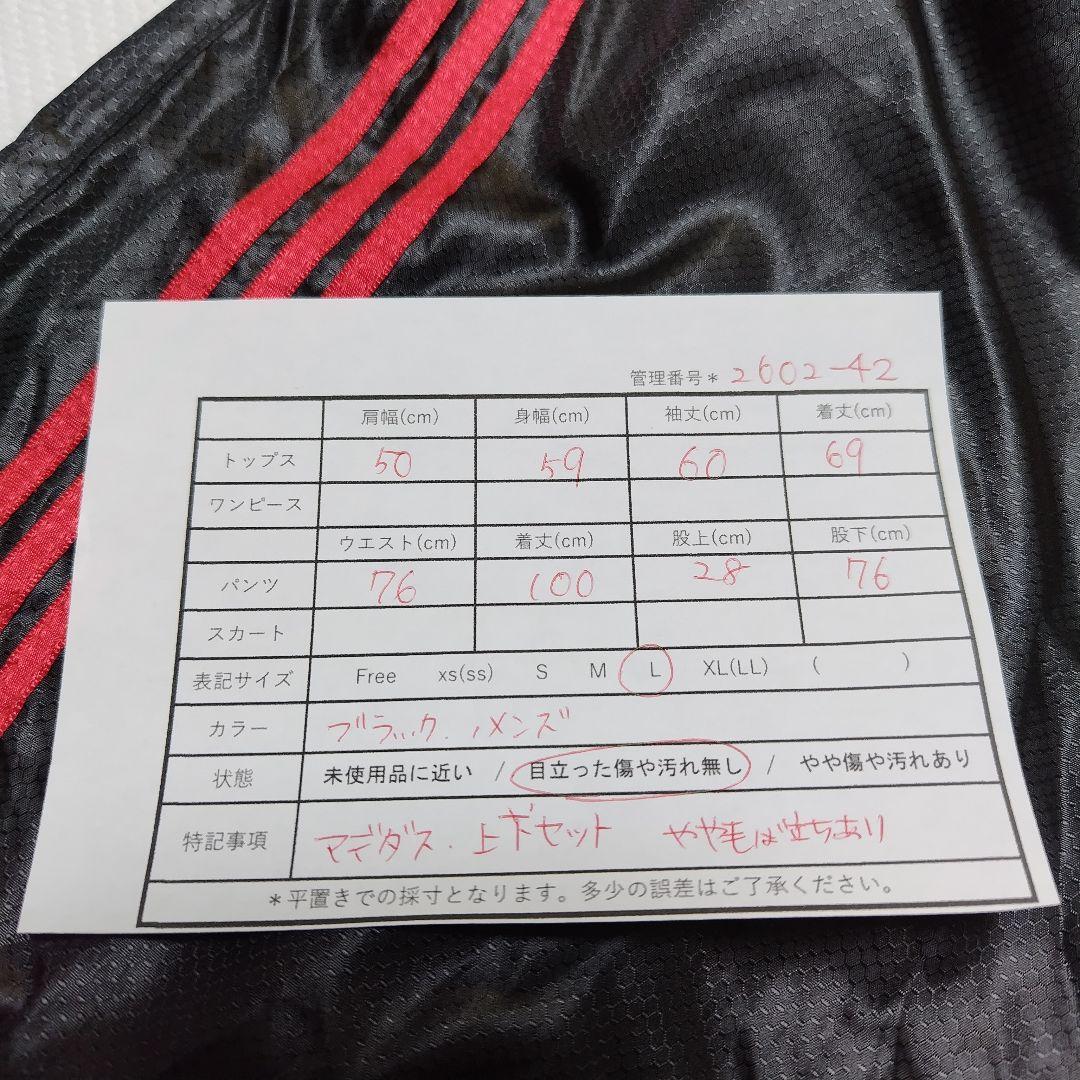 管理番号* 2602-42
肩幅(cm) 身幅(cm) 袖丈(cm) 着丈(cm)
トップス 50 59 60 69
ワンピース
ウエスト(cm) 着丈(cm) 股上(cm) 股下(cm)
パンツ 76 100 28 76
スカート
表記サイズ Free xs(ss) S M L XL(LL) ( )
カラー ブラック.メンズ
状態 未使用品に近い / 目立った傷や汚れ無し / やや傷や汚れあり
特記事項 アディダス.上下セット やや毛ば立ちあり
*平置きでの採寸となります。多少の誤差はご了承ください。